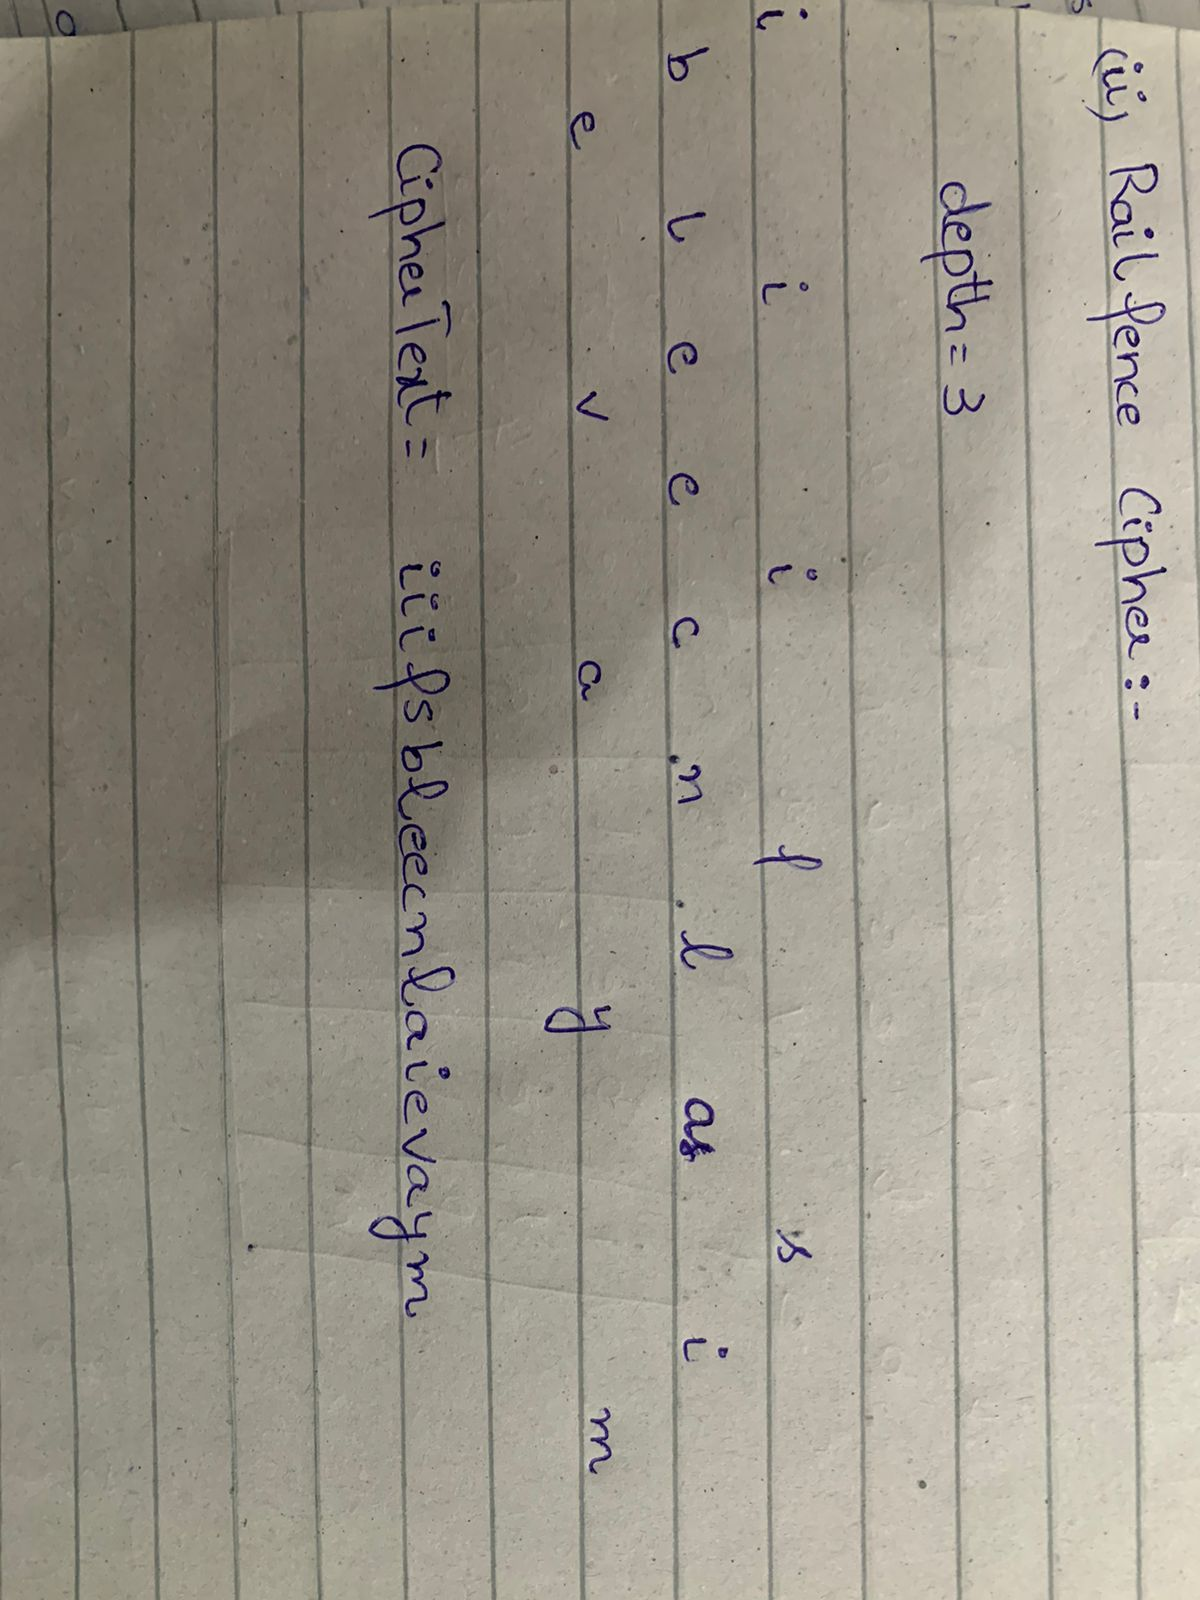 (ii) Rail fence Cipher :-
depth = 3
i i i f s
b l e e c n l a i
e v a y m
CipherText = iiifsbleecnlaievaym